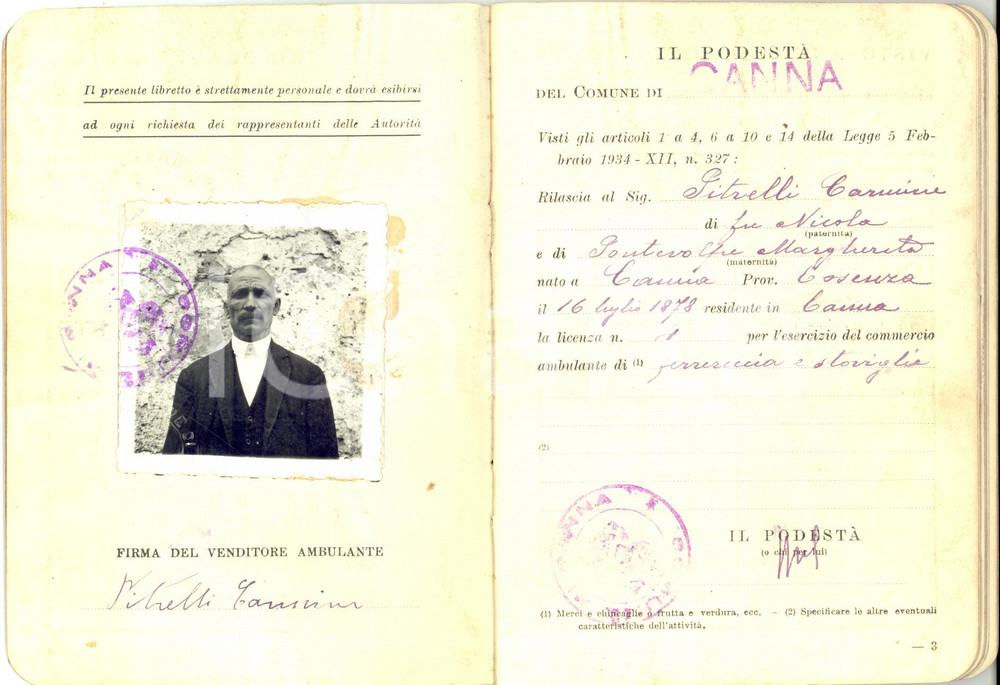 Il presente libretto è strettamente personale e dovrà esibirsi
ad ogni richiesta dei rappresentanti delle Autorità
FIRMA DEL VENDITORE AMBULANTE
Pitrelli Carmine
IL PODESTÀ
DEL COMUNE DI CANNA
Visti gli articoli 1 a 4, 6 a 10 e 14 della Legge 5 Feb-
braio 1934 - XII, n. 327 :
Rilascia al Sig. Pitrelli Carmine
di fu Nicola
(paternità)
e di Pontevolpe Margherita
(maternità)
nato a Canna Prov. Cosenza
il 16 luglio 1878 residente in Canna
la licenza n. 1 per l'esercizio del commercio
ambulante di (1) ferrareccia e stoviglie
(2)
IL PODESTÀ
(o chi per lui)
(1) Merci e chincaglie o frutta e verdura, ecc. - (2) Specificare le altre eventuali
caratteristiche dell'attività.
— 3